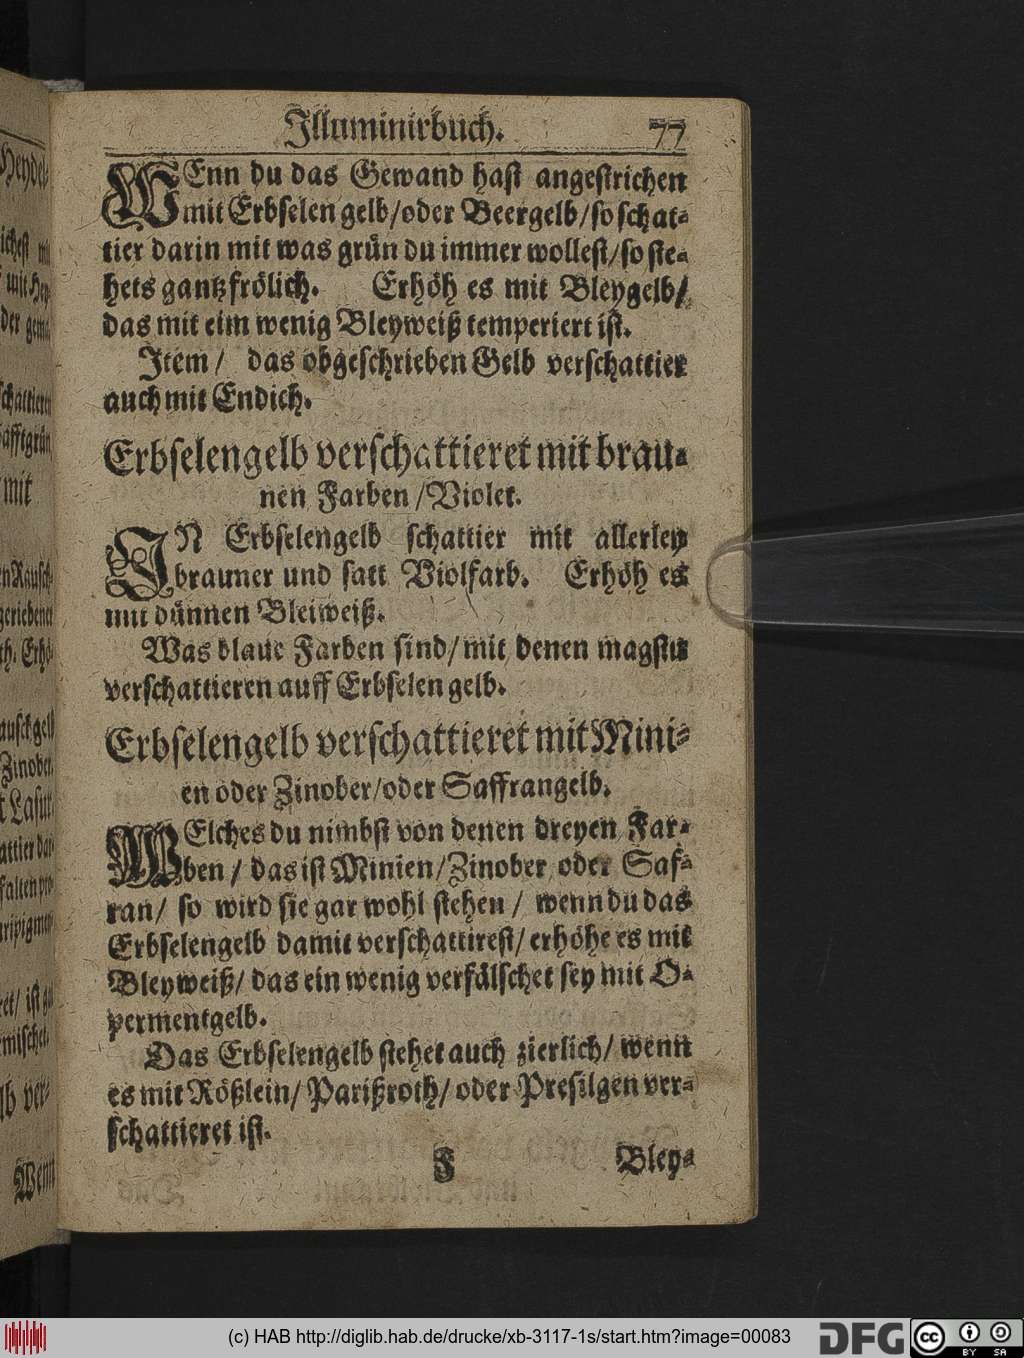 Illuminirbuch. 77
WEnn du das Gewand hast angestrichen
mit Erbselen gelb/oder Beergelb/so schat-
tier darin mit was grün du immer wollest/so ste-
hets gantz frölich. Erhöh es mit Bleygelb/
das mit eim wenig Bleyweiß temperiert ist.
Item/ das obgeschrieben Gelb verschattier
auch mit Endich.
Erbselengelb verschattieret mit brau-
nen Farben/Violet.
IN Erbselengelb schattier mit allerley
brauner und satt Violfarb. Erhöh es
mit dünnen Bleiweiß.
Was blaue Farben sind/mit denen magstu
verschattieren auff Erbselen gelb.
Erbselengelb verschattieret mit Mini-
en oder Zinober/oder Saffrangelb.
WElches du nimbst von denen dreyen Far-
ben/ das ist Minien/Zinober oder Saf-
ran/ so wird sie gar wohl stehen/ wenn du das
Erbselengelb damit verschattirest/erhöhe es mit
Bleyweiß/ das ein wenig verfälschet sey mit O-
permentgelb.
Das Erbselengelb stehet auch zierlich/ wenn
es mit Rößlein/ Parißroth/ oder Presilgen ver-
schattieret ist.
F Bley-
Wenn
(c) HAB http://diglib.hab.de/drucke/xb-3117-1s/start.htm?image=00083
DFG cc BY SA